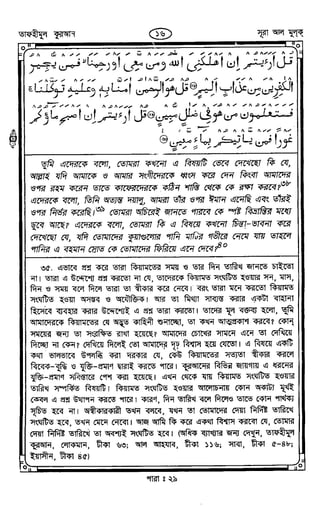 তাফহীমুল কুরআন
১৬
সূরা আল মুল্‌ক
قُلْ أَرَءَيْتُمْ إِنْ أَهْلَكَنِيَ اللَّهُ وَمَنْ مَّعِيَ أَوْ رَحِمَنَا فَمَنْ يُّجِيرُ
الْكٰفِرِينَ مِنْ عَذَابٍ أَلِيمٍ قُلْ هُوَ الرَّحْمٰنُ اٰمَنَّا بِهِ وَعَلَيْهِ تَوَكَّلْنَا
فَسَتَعْلَمُونَ مَنْ هُوَ فِي ضَلٰلٍ مُّبِينٍ قُلْ أَرَءَيْتُمْ إِنْ أَصْبَحَ مَاؤُكُمْ
غَوْرًا فَمَنْ يَّأْتِيكُمْ بِمَاءٍ مَّعِينٍ
তুমি এদেরকে বলো, তোমরা কখনো এ বিষয়টি ভেবে দেখেছো কি যে,
আল্লাহ যদি আমাকে ও আমার সংগীদেরকে ধ্বংস করে দেন কিংবা আমাদের
ওপর রহম করেন তাতে কাফেরদেরকে কঠিন শাস্তি থেকে কে রক্ষা করবে?৩৮
এদেরকে বলো, তিনি অত্যন্ত দয়ালু, আমরা তাঁর ওপর ঈমান এনেছি এবং তাঁরই
ওপর নির্ভর করেছি।৩৯ তোমরা অচিরেই জানতে পারবে কে স্পষ্ট বিভ্রান্তির মধ্যে
ডুবে আছে? এদেরকে বলো, তোমরা কি এ বিষয়ে কখনো চিন্তা-ভাবনা করে
দেখেছো যে, যদি তোমাদের কুয়াগুলোর পানি মাটির গভীরে নেমে যায় তাহলে
পানির এ বহমান স্রোত কে তোমাদের ফিরিয়ে এনে দেবে?৪০
৩৫. এভাবে প্রশ্ন করে তারা কিয়ামতের সময় ও তার দিন তারিখ জানতে চাইতো
না। তারা এ উদ্দেশ্যে প্রশ্ন করতো না যে, তাদেরকে কিয়ামত সংঘটিত হওয়ার সন, মাস,
দিন ও সময় বলে দিলে তারা তা স্বীকার করে নেবে। বরং তারা মনে করতো কিয়ামত
সংঘটিত হওয়া অসম্ভব ও অযৌক্তিক। আর তা মিথ্যা সাব্যস্ত করার একটা বাহানা
হিসেবে ব্যবহার করার উদ্দেশ্যেই এ প্রশ্ন তারা করতো। তাদের মূল বক্তব্য হলো, তুমি
আমাদেরকে কিয়ামতের যে অদ্ভূত কাহিনী শুনাচ্ছো, তা কখন আত্মপ্রকাশ করবে? কোন্
সময়ের জন্য তা সংরক্ষিত রাখা হয়েছে? আমাদের চোখের সামনে এনে তা দেখিয়ে
দিচ্ছো না কেন? দেখিয়ে দিলেই তো আমাদের দৃঢ় বিশ্বাস হয়ে যেতো। এ বিষয়ে একটি
কথা ভালভাবে উপলব্ধি করা দরকার যে, কেউ কিয়ামতের সত্যতা স্বীকার করলে
বিবেক-বুদ্ধি ও যুক্তি-প্রমাণ দ্বারাই করতে পারে। কুরআনের বিভিন্ন জায়গায় এ ধরনের
যুক্তি-প্রমাণ সবিস্তারে পেশ করা হয়েছে। এখন থেকে যায় কিয়ামত সংঘটিত হওয়ার
তারিখ সম্পর্কিত বিষয়টি। কিয়ামত সংঘটিত হওয়ার আলোচনায় কোন অকাট্য মূর্খই
কেবল এ প্রশ্ন উত্থাপন করতে পারে। কারণ, দিন তারিখ বলে দিলেও তাতে কোন পার্থক্য
সূচিত হবে না। অস্বীকারকারী তখন বলবে, যখন তা তোমাদের দেয়া নির্দিষ্ট তারিখে
সংঘটিত হবে, তখন মেনে নেবো। আজ আমি কি করে একথা বিশ্বাস করবো যে, তোমার
দেয়া নির্দিষ্ট তারিখে তা অবশ্যই সংঘটিত হবে। (অধিক ব্যাখ্যার জন্য দেখুন, তাফহীমুল
কুরআন, লোকমান, টীকা ৬৩; আল আহযাব, টীকা ১১৬; সাবা, টীকা ৫-৪৮;
ইয়াসীন, টীকা ৪৫)
পারা : ২৯